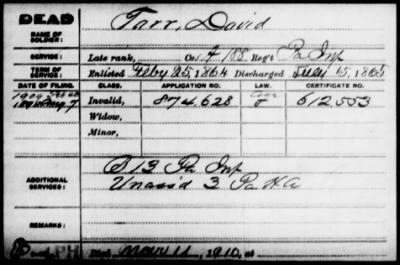 DEAD
NAME OF SOLDIER:
Tarr, David
SERVICE:
Late rank, Co. A, 188 Reg't Pa Inf
TERM OF SERVICE:
Enlisted Feby 25, 1864 Discharged July 15, 1865
DATE OF FILING. CLASS. APPLICATION NO. LAW. CERTIFICATE NO.
Aug. 7 Invalid, 874,628 612,553
Widow,
Minor,
ADDITIONAL SERVICES:
B 13 Pa Inf
Unass'd 3 Pa H A
REMARKS:
Died Mar 11, 1910, at